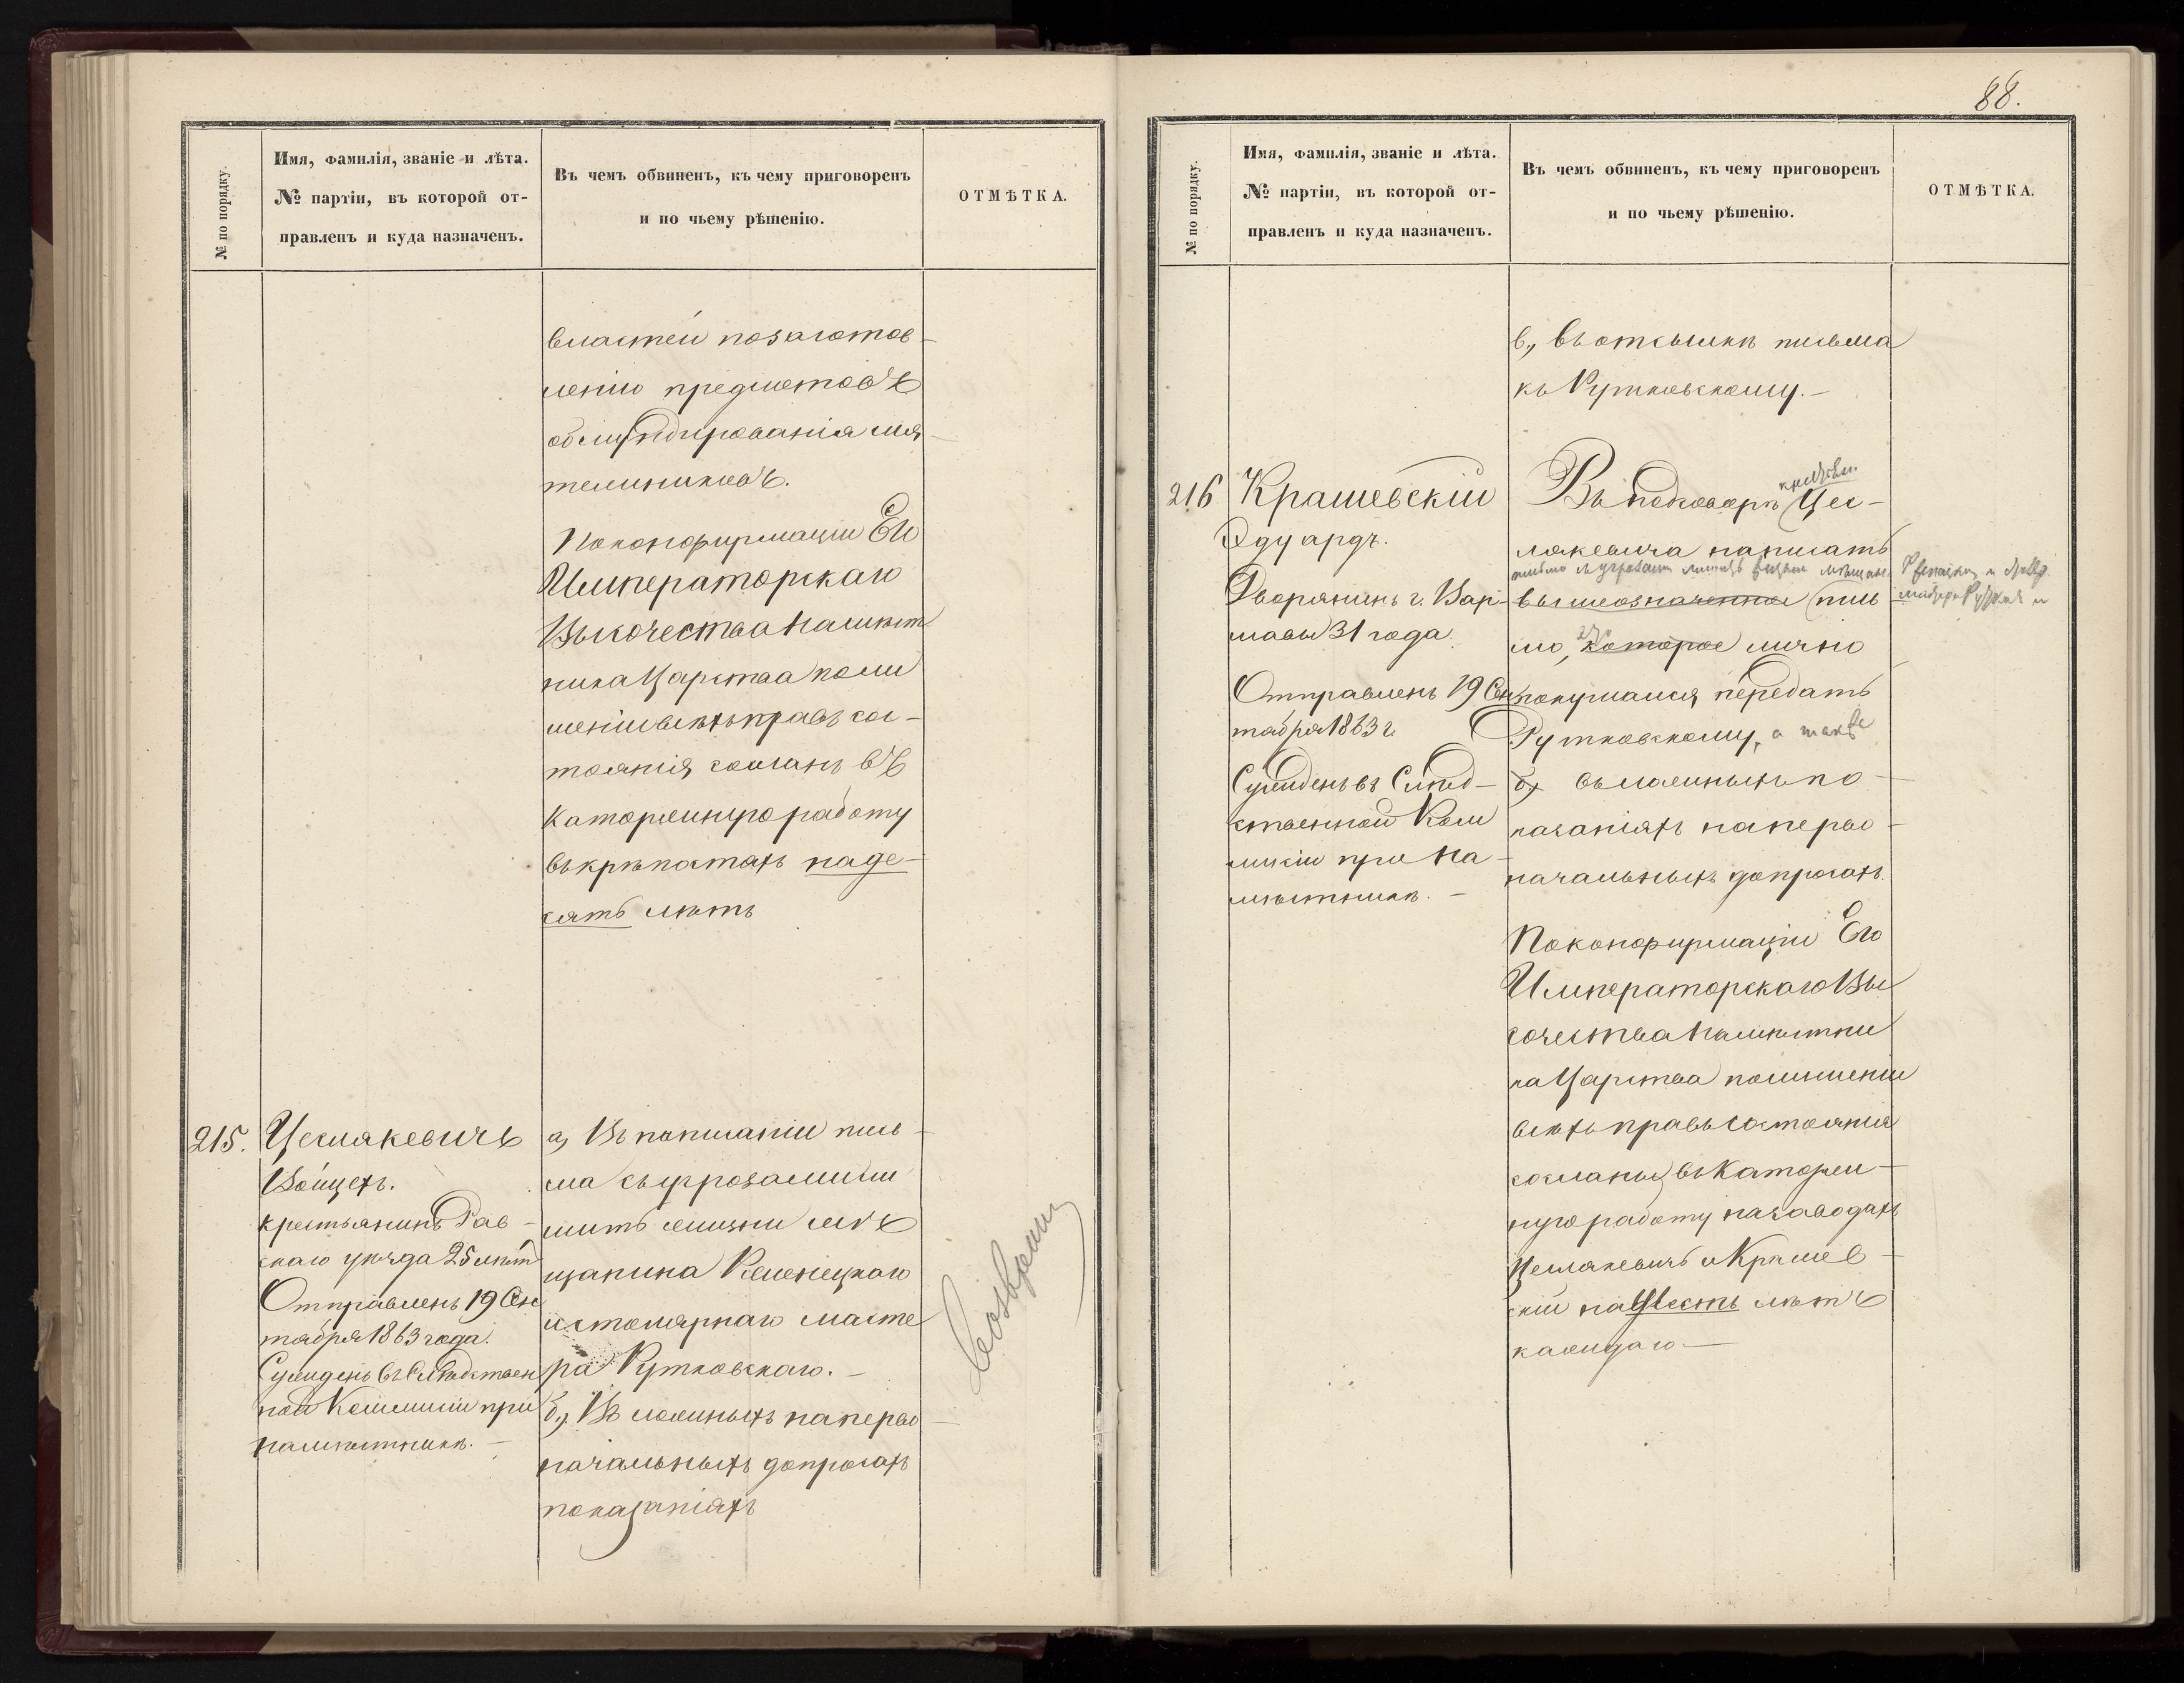 № по порядку.
Имя, фамилія, званіе и лѣта.
№ партіи, въ которой от-
правленъ и куда назначенъ.
Въ чемъ обвиненъ, къ чему приговоренъ
и по чьему рѣшенію.
ОТМѢТКА.
властей по заготов-
ленію предметовъ
обмундированія мя-
тежниковъ.
По конфирмаціи Его
Императорскаго
Высочества Намѣст
ника Царства по ли
шеніи всѣхъ правъ сос-
тоянія сосланъ въ
каторжную работу
въ крѣпостяхъ на де-
сять лѣтъ
215. Цеслякевичъ
Войцехъ.
крестьянинъ Рав-
скаго уѣзда 25 лѣтъ
Отправленъ 19 Сен
тября 1863 года.
Сужденъ въ Слѣдствен
ной Коммисіи при
Намѣстникѣ. —
а, Въ написаніи пись-
ма съ угрозами ли
шить жизни мѣ
щанина Кеменецкаго
и столярнаго масте
ра Рутковскаго. —
б., Въ ложныхъ на перво-
начальныхъ допросахъ
показаніяхъ
88.
№ по порядку.
Имя, фамилія, званіе и лѣта.
№ партіи, въ которой от-
правленъ и куда назначенъ.
Въ чемъ обвиненъ, къ чему приговоренъ
и по чьему рѣшенію.
ОТМѢТКА.
в., въ отсылкѣ письма
къ Рутковскому. —
216 Крашевскій
Эдуардъ.
Дворянинъ г. Вар-
шавы 31 года.
Отправленъ 19 Сен
тября 1863 г.
Сужденъ въ Слѣд-
ственной Ком
мисіи при На-
мѣстникѣ. —
Въ подговорѣ Цес-
лякевича написать
письмо съ угрозами лишить жизни мѣщан.
вышеозначенное пись-
мо, которое лично
покушался передать
Рутковскому, а также
б, въ ложныхъ по-
казаніяхъ на перво-
начальныхъ допросахъ.
По конфирмаціи Его
Императорскаго Вы
сочества Намѣстни
ка Царства по лишеніи
всѣхъ правъ состоянія
сосланы въ каторж-
ную работу на заводахъ
Цеслякевичъ и Крашев-
скій на шесть лѣтъ
каждаго. —